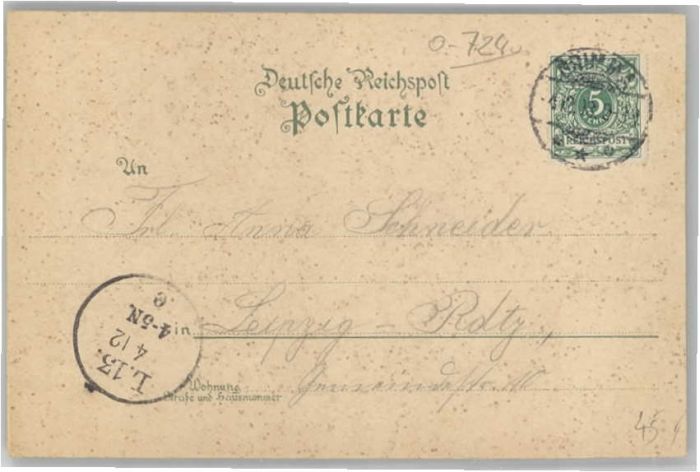 0-724
Deutsche Reichspost
Postkarte
GRIMMA
4 12
5
REICHSPOST
* c
An
Frl. Anna Schneider
in Leipzig - Rdtz.,
Wohnung
Straße und Hausnummer
Gemeindestr.
L.13.
4 12
4-5N.
c.
45